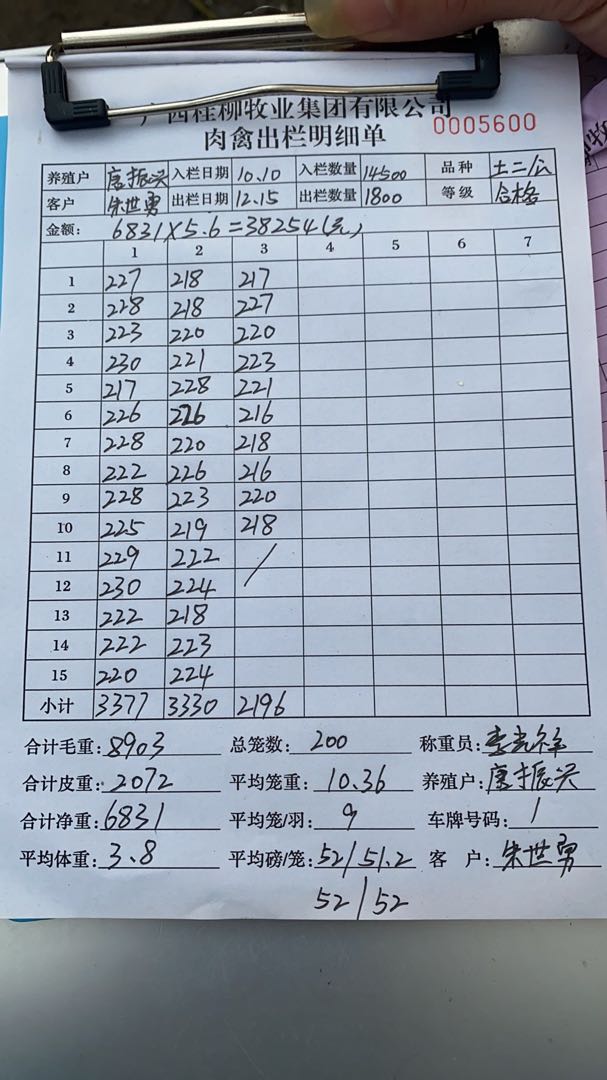 广西桂柳牧业集团有限公司
肉禽出栏明细单 0005600
养殖户 唐振兴 入栏日期 10.10 入栏数量 14500 品种 土二/公
客户 朱世勇 出栏日期 12.15 出栏数量 1800 等级 合格
金额: 6831×5.6=38254(元)
1 2 3 4 5 6 7
1 227 218 217
2 228 218 227
3 223 220 220
4 230 221 223
5 217 228 221
6 226 226 216
7 228 220 218
8 222 226 216
9 228 223 220
10 225 219 218
11 229 222 /
12 230 224
13 222 218
14 222 223
15 220 224
小计 3377 3330 2196
合计毛重: 8903 总笼数: 200 称重员: 李
合计皮重: 2072 平均笼重: 10.36 养殖户: 唐振兴
合计净重: 6831 平均笼/羽: 9 车牌号码: 1
平均体重: 3.8 平均磅/笼: 52/51.2 客 户: 朱世勇
52/52